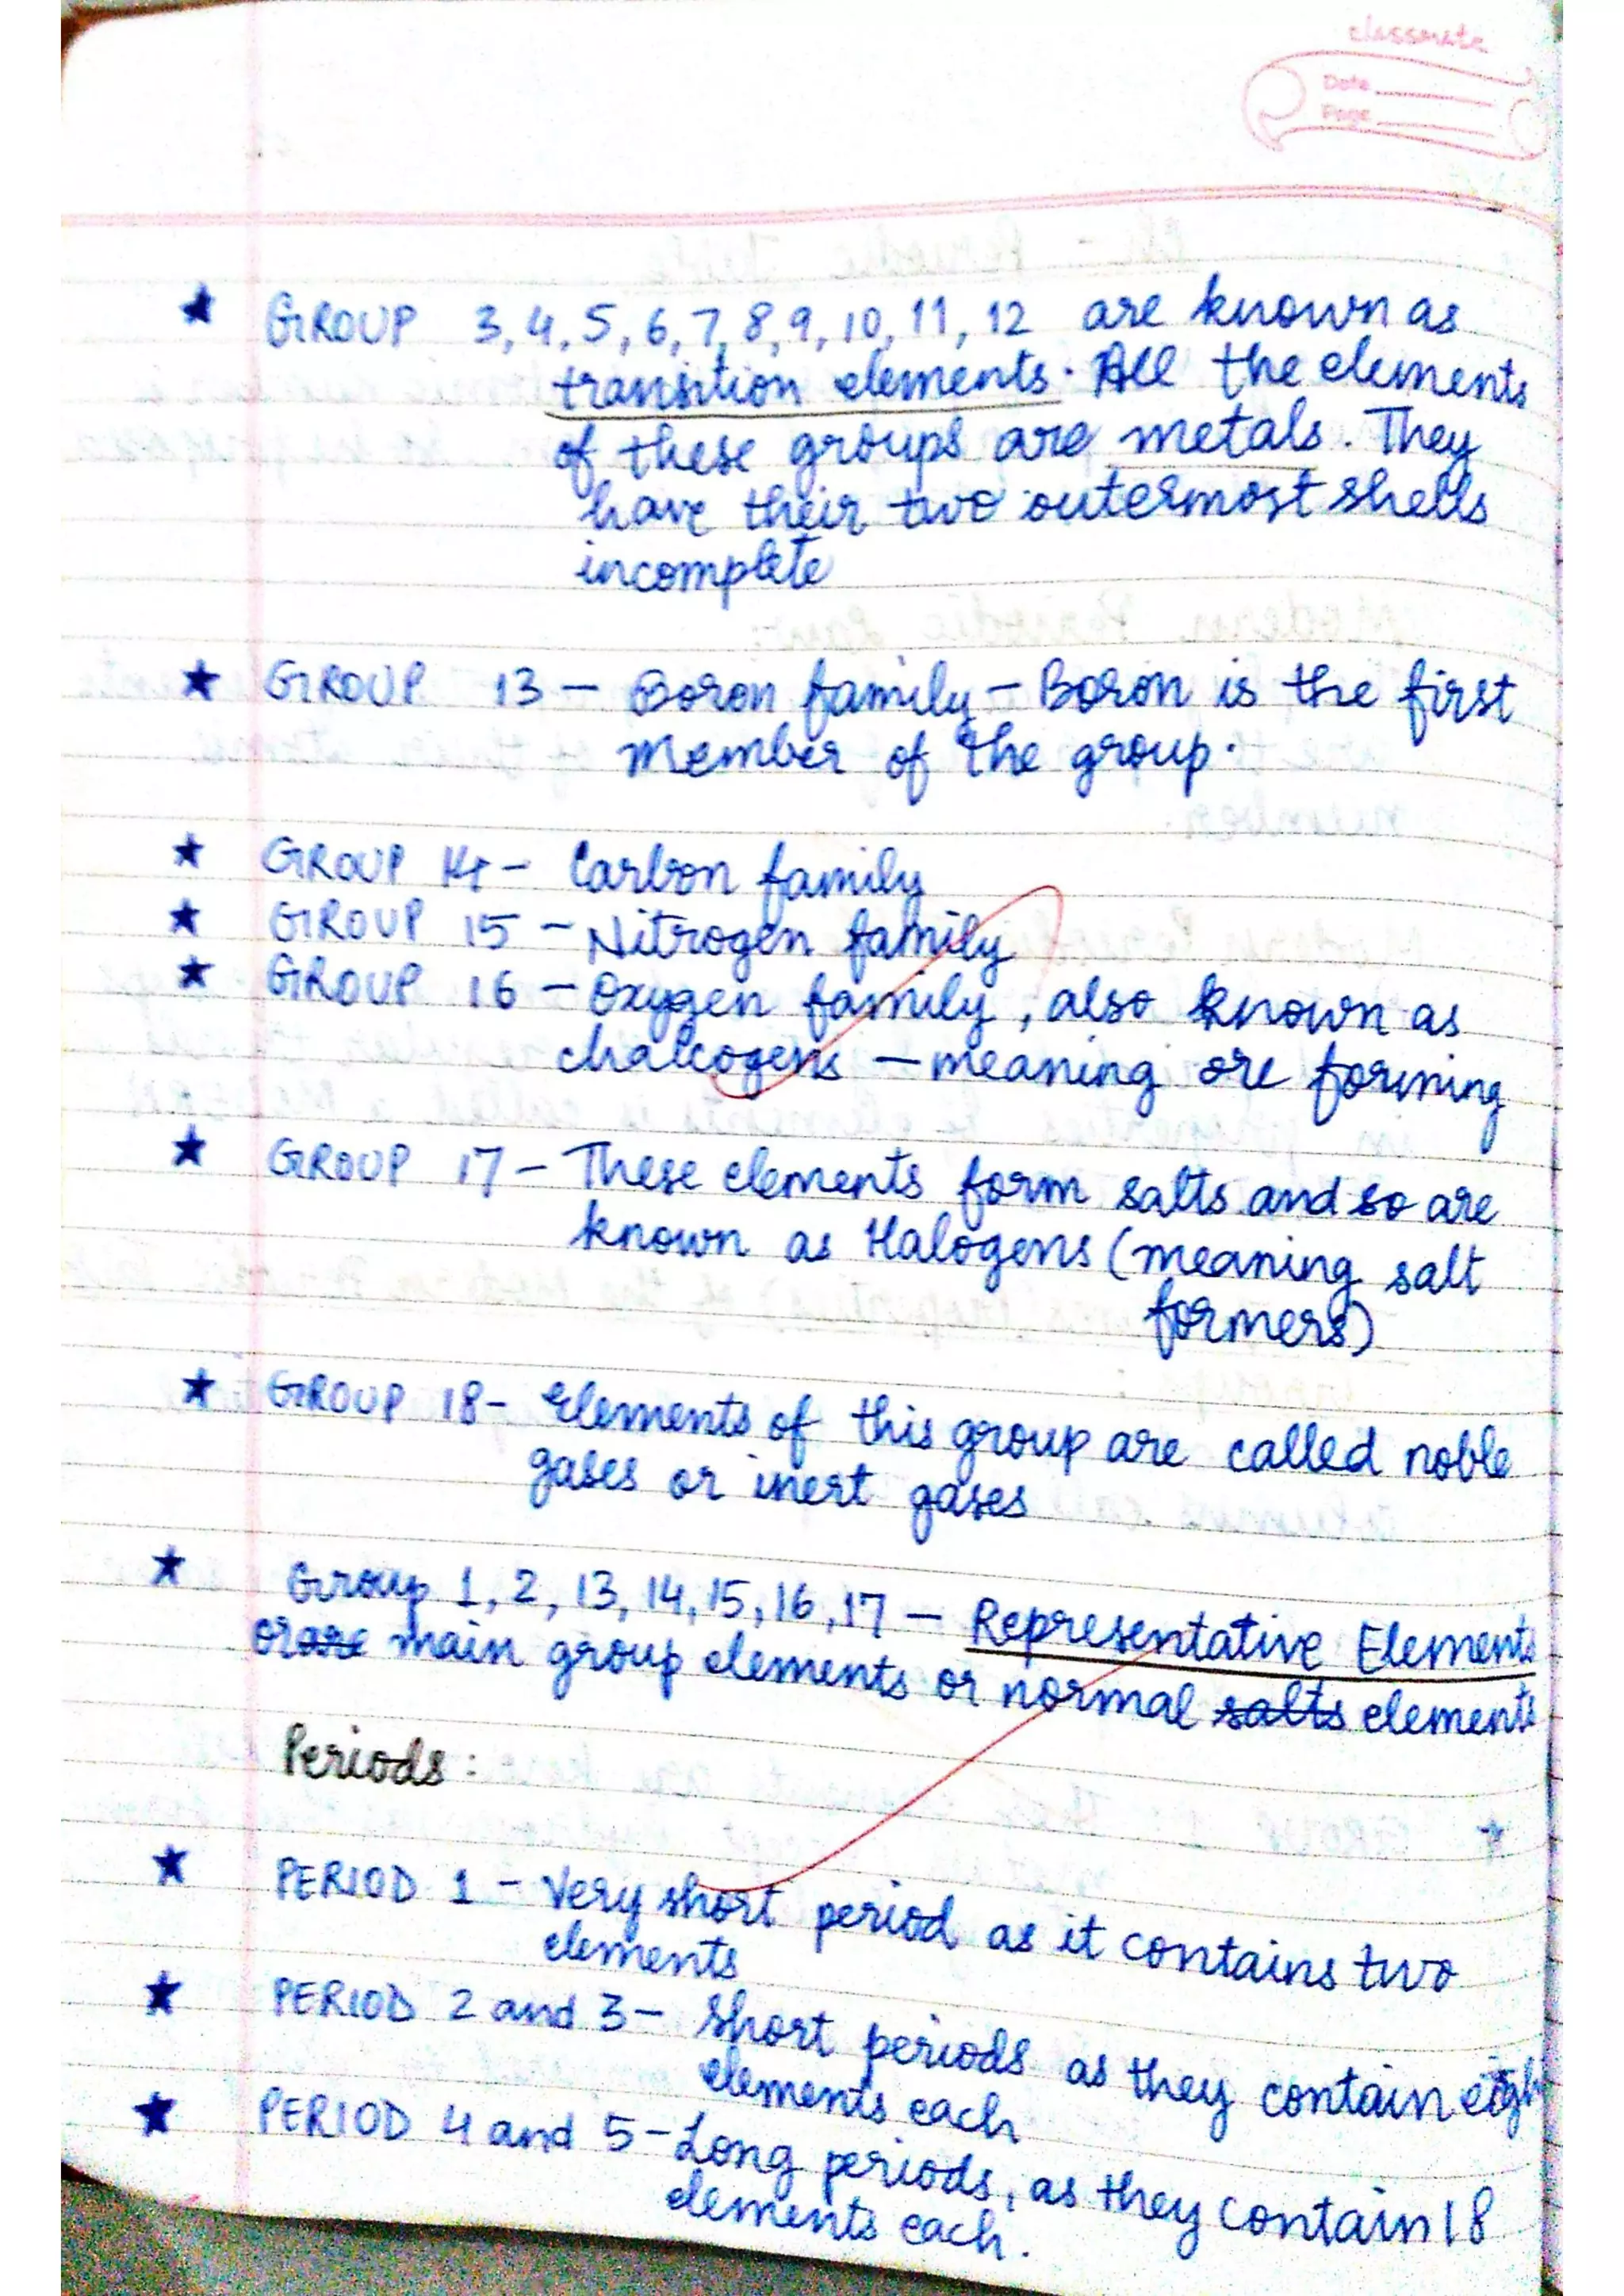 classmate
Date
Page
★ GROUP 3, 4, 5, 6, 7, 8, 9, 10, 11, 12 are known as
transition elements. All the elements
of these groups are metals. They
have their two outermost shells
incomplete
★ GROUP 13 – Boron family – Boron is the first
member of the group.
★ GROUP 14 – Carbon family
★ GROUP 15 – Nitrogen family
★ GROUP 16 – Oxygen family, also known as
chalcogens – meaning ore forming
★ GROUP 17 – These elements form salts and so are
known as Halogens (meaning salt
formers)
★ GROUP 18 – Elements of this group are called noble
gases or inert gases
★ Group 1, 2, 13, 14, 15, 16, 17 – Representative Elements
or are main group elements or normal salts elements
Periods:
★ PERIOD 1 – Very short period as it contains two
elements
★ PERIOD 2 and 3 – Short periods as they contain eigh
elements each
★ PERIOD 4 and 5 – Long periods, as they contain 18
elements each.